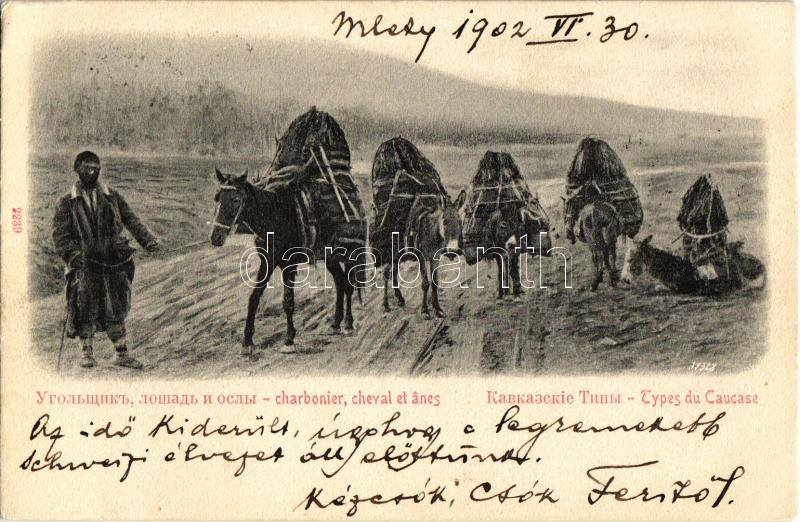 Mlety 1902 VI. 30.
2239
darabanth
39328
Угольщикъ, лошадь и ослы - charbonier, cheval et ânes
Кавказскіе Типы - Types du Caucase
Az idő kiderült, úgyhogy a legremekebb
schweizi élvezet áll előttünk.
Kézcsók, Csók Feritől.